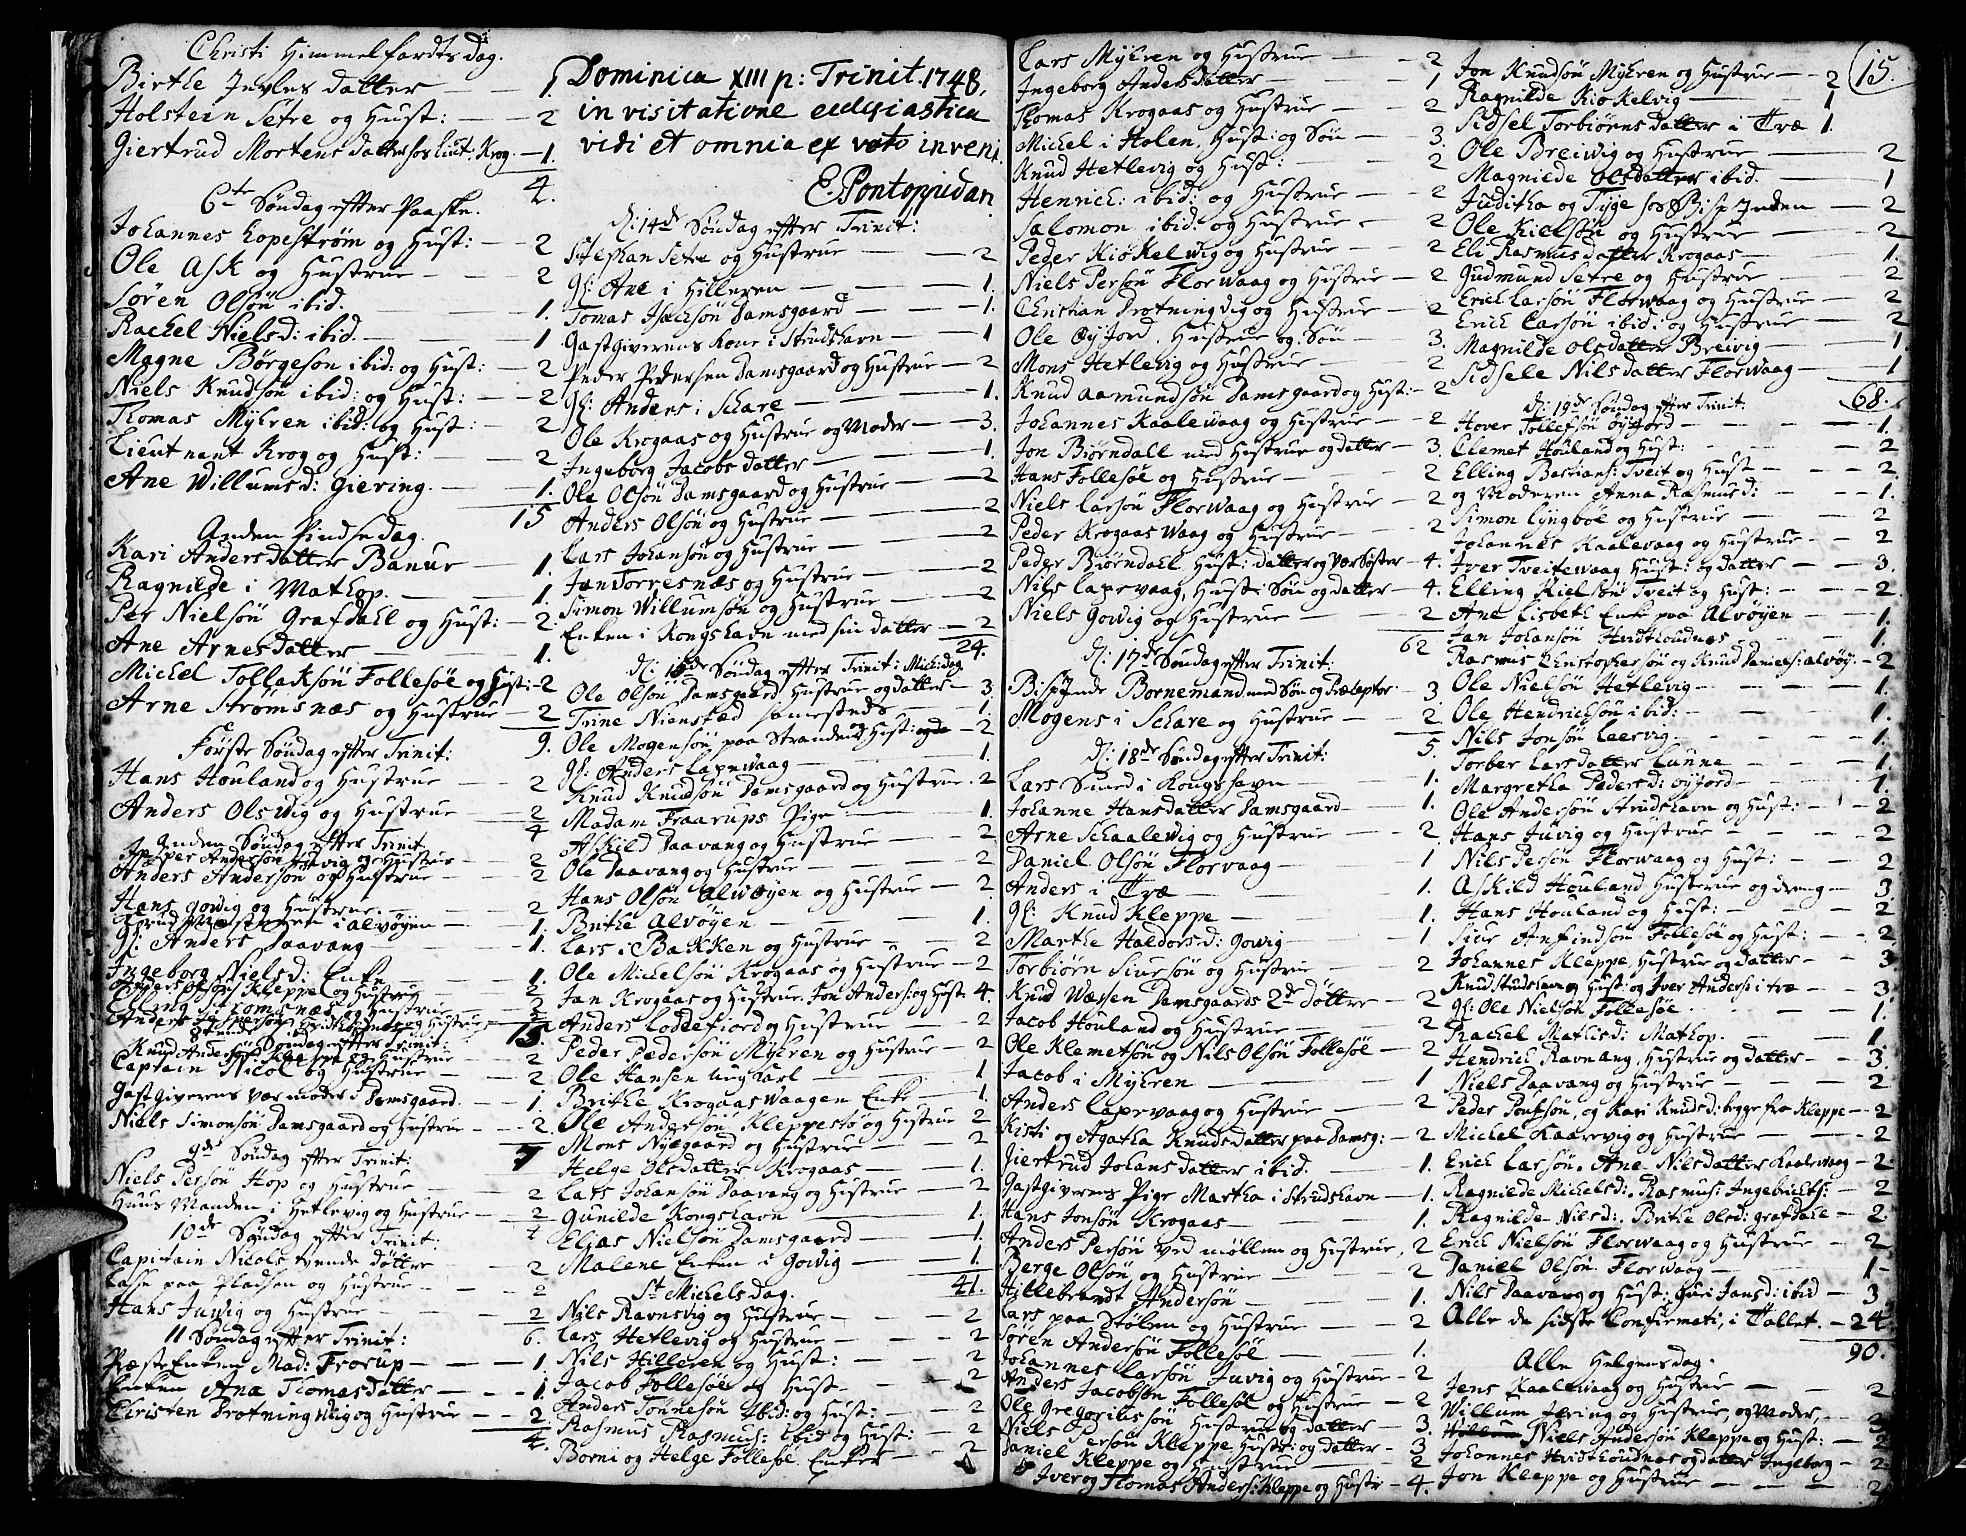 Christi Himmelfardts dag.
Birthe Jvles datter — 1.
Holstern Sétre og Hust: — 2
Giertrud Mortens datter hos Liut: Krog — 1.
4.
6te Søndag efter Paaske.
Johannes Lopestrøm og Hust: — 2
Ole Ask og Hustrue — 2
Søren Olsøn ibid. — 1.
Rachel Nielsd: ibid. — 1
Magne Børgeson ibid: og Hust: — 2
Niels Knudsøn ibid: og Hust: — 2
Thomas Myhren ibid: og Hust: — 2
Lieutnant Krog og Hust: — 2
Ane Willumsd: Giering. — 1.
15
Anden Pindse dag.
Kari Anders datter Banur — 1.
Ragnilde i Mathop. — 1.
Per Nielsøn Grafdahl og Hust: — 2.
Ane Arnesdatter — 1.
Michel Tollaksøn Follesøe og Hust: — 2
Arne Strømsnæs og Hustrue — 2
9.
Første Søndag efter Trinit:
Hans Houland og Hustrue — 2
Anders Olsvig og Hustrue — 2
4
Anden Søndag efter Trinit
Jesper Andersøn Juvig og Hustrue — 2
Anders Andersøn og Hustrue — 2
Hans Godvig og Hustrue. — 2
i Alvøyen — 1.
gl: Anders Daavang — 1.
Ingeborg Nielsd: Enke — 1.
Anders Olsøn Kleppe og Hustrue
Elling Lomsnæs og Hustrue — 2
15.
Søndag efter Trinit:
Knud Andersøn Kleppe og Hustrue — 2
Captain Nicol og Hustrue — 2
Gastgiverens vær moder i Damsgaard. — 1.
Niels Simonsøn Damsgaard og Hustrue — 2
7
9de Søndag efter Trinit:
Niels Persøn Hop og Hustrue — 2
Huus Manden i Hetlevig og Hustrue — 2
4
10de Søndag efter Trinit:
Capitain Nicols tvende døttre — 2
Lasse paa Pladsen og Hustrue — 2
Hans Juvig og Hustrue — 2
6.
11 Søndag efter Trinit:
Præste Enken Mad: Frorup — 1.
Enken Ane Thomasdatter — 1.
Christen Drotning Wiig og Hustrue — 2.
4.
Dominica XIII p: Trinit. 1748,
in visitatione ecclesiastica
vidi et omnia ex voto inveni
E. Pontoppidan
d: 14de Søndag efter Trinit:
Stephan Setre og Hustrue — 2
gl: Ane i Hilleren — 1.
Tomas Isachsøn Damsgaard — 1.
Gastgiverens Kone i Strudshavn — 1
Peder Pedersen Damsgaard og Hustrue — 2
gl: Anders i Schare — 1.
Ole Krogaas og Hustrue og Moder — 3.
Ingeborg Jacobs datter — 1.
Ole Olsøn Damsgaard og Hustrue — 2
Anders Olsøn og Hustrue — 2
Lars Johansøn og Hustrue — 2
Jan Torresnæs og Hustrue — 2
Simon Willumsøn og Hustrue — 2
Enken i Kongshavn med sin datter — 2
24.
Søndag efter Trinit: Michidag
Ole Olsøn Damsgaard Hustrue og datter — 3.
Trine Nienstæd sammesteds — 1.
Ole Mogensøn paa Stranden Hust: — 2
gl: Anders Lapevaag — 1.
Knud Knudsøn Damsgaard og Hustrue. 2
Madam Fraarups Pige — 1.
Askild Daavang og Hustrue — 2
Ole Daavang og Hustrue — 2
Hans Olsøn Alvøyen og Hustrue — 2
Brithe Alvøyen — 1.
Lars i Bakken og Hustrue — 2
Ole Michelsøn Krogaas og Hustrue — 2
Jan Krogaas og Hustrue. Jon Anders: og Hust. 4.
Anders Loddefiord og Hustrue — 2
Peder Pedersøn Myhren og Hustrue — 2
Ole Hansen ungkarl — 1
Brithe Krogaas Waagen Enke — 1.
Ole Andersøn Kleppestø og Hustrue 2
Mons Nygaard og Hustrue — 2
Helge Olsdatter Krogaas — 1.
Lars Johansøn Daavang og Hustrue — 2
Gunilde Kongshavn — 1.
Elias Nielsøn Damsgaard — 1.
Malene Enken i Godvig — 1.
41.
St Michels dag.
Nils Ravnsvig og Hustrue — 2
Lars Hetlevig og Hustrue — 2
Nils Hilleren og Hust: — 2
Jacob Follesøe og Hust. — 2
Anders Tonnesøn Ibid: og Hust: — 2
Rasmus Rasmus: ibid og Hust: — 2
Borni og Helge Follesøe, Enker — 2
Lars Myhren og Hustrue — 2
Ingeborg Andersdatter — 1
Thomas Krogaas og Hustrue — 2
Michel i Holen, Hust: og Søn — 3.
Knud Hetlevig og Hust: — 2
Henrich ibid: og Hustrue — 2
Salomon ibid: og Hustrue — 2
Peder Kiøkelvig og Hustrue — 2
Niels Persøn Florwaag og Hustrue — 2
Christian Drotningvig og Hustrue — 2
Ole Øyjord, Hustrue og Søn — 3.
Mons Hetlevig og Hustrue — 2
Knud Aamundsøn Damsgaard og Hust: — 2
Johannes Kaalewaag og Hustrue — 2
Jon Biørndall med Hustrue og datter — 3.
Hans Follesøe og Hustrue — 2
Niels Larsøn Florwaag og Hustrue — 2
Peder Krogaas Waag og Hustrue — 2
Peder Biørndahl Hust: datter og Vær Søster — 4.
Nils Lapevaag, Hust: Søn og datter — 4.
Niels Godvig og Hustrue — 2
62
d: 17de Søndag efter Trinit:
Bisp Inde Bornemand med Søn og Præceptor — 3
Mogens i Schare og Hustrue — 2
5.
d: 18de Søndag efter Trinit:
Lars Smed i Kongshavn — 1.
Johanne Hansdatter Damsgaard — 1.
Arne Schaalewig og Hustrue — 2.
Daniel Olsøn Florvaag — 1
Anders i Træ — 1.
gl: Knud Kleppe — 1.
Marthe Haldorsd: Godvig — 1
Torbiørn Siursøn og Hustrue — 2
Knud Wæssen Damsgaards 2de Døttre — 2
Jacob Houland og Hustrue — 2
Ole Klemetsøn og Nils Olsøn Follesøe — 2
Jacob i Myhren — 1
Anders Lapevaag og Hustrue — 2
Kisti og Agatha Knudsdatter paa Damsg: — 2
Giertrud Johans datter ibid. — 1.
Gastgiverens Pige Martha i Strudshavn — 1.
Hans Jonsøn Krogaas — 1.
Anders Persøn ved møllen og Hustrue, 2
Berge Olsøn og Hustrue — 2
Hillebrandt Andersøn — 1.
Lars paa Stølen og Hustrue — 2
Søren Andersøn Follesøe — 1.
Johannes Larsøn Juvig og Hustrue — 2
Anders Jacobsen Follesøe og Hustrue — 2
Ole Gregoriussøn Hustrue og datter — 3.
Niels Persøn Kleppe Hust: og datter — 3
Daniel Kleppe og Hustrue — 2
Iver og Thomas Anders: Kleppe og Hustr — 4.
15.
Jon Knudsøn Myhren og Hustrue — 2
Ragnilde Kiøkelvig — 1
Sidsel Torbiørns datter i Træ 1.
Ole Breiwig og Hustrue — 2
Magnilde Olsdatter ibid. — 1
Juditha og Tyge hos Bisp Inden — 2
Ole Kielsøn og Hustrue — 2
Eli Rasmusdatter Krogaas — 1.
Gudmund Setre og Hustrue — 2
Erich Larsøn Florwaag og Hustrue — 2
Erich Larsøn ibid: og Hustrue — 2
Magnilde Olsdatter Breivig — 1
Sidsele Nilsdatter Florwaag — 1
68.
d: 19de Søndag efter Trinit:
Hover Tollefsøn Øyjord — 1.
Clemet Houland og Hust: — 2
Elling Bastians: Tveit og Hust — 2
og Moderen Anna Rasmusd: — 1.
Simon Lyngbøe og Hustrue — 2
Johannes Kaalevaag og Hustrue — 2
Iver Tveitewaag Hust: og datter — 3.
Elling Kielsøn Tveit og Hust: — 2
Ane Lisbeth Enke paa Alvøyen — 1.
Jan Johansøn Hvidthoudnæs — 1.
Rasmus Christophersøn og Knud Daniels: Alvøy. — 2
Ole Nielsøn Hetlevig — 1.
Ole Hendrichsøn ibid: — 1.
Nils Jonsøn Leervig. — 1.
Torber Larsdatter Lunne — 1.
Margretha Pedersd: Øyjord — 1.
Ole Andersøn Strudshavn og Hust: — 2
Hans Juvig og Hustrue — 2
Nils Persøn Florwaag og Hust: — 2
Askild Houland, Hustrue og dreng — 3.
Hans Houland og Hust: — 2
Siur Anfindsøn Follesøe og Hust: — 2
Johannes Kleppe, Hustrue og datter — 3
Knud Studshavn og Hust: og Iver Anders: i træ — 3
gl: Ole Nielsøn Follesøe. — 1.
Rachel Mathisd: Mathop. — 1
Hendrich Ravnang, Hustrue og datter — 3.
Niels Daavang og Hustrue — 2
Peder Poulsøn, og Kari Knudsd: begge fra Kleppe — 2
Michel Kaarevig og Hustrue — 2
Erich Larsøn. Ane Nilsdatter Kaalewaag — 2
Ragnilde Michelsd:. Rasmus: Ingebrichts: — 2
Ragnilde Nilsd:. Brithe Olsd: Grafdahl — 2.
Erich Nielsøn Florwaag og Hustrue — 2
Daniel Olsøn Florwaag — 1
Nils Daavang og Hust: Guri Jansd: ibid — 3
Alle de sidste Confirmeti, i Tallet. — 24.
90.
Alle Helgens dag.
Jens Kaalewaag og Hustrue — 2
Willum Jering og Hustrue, og Moder, — 3
Niels Andersøn Kleppe og Hust: — 2
Johannes Hvidthoudnæs og datter Ingeborg — 2
Jon Kleppe og Hustrue — 2